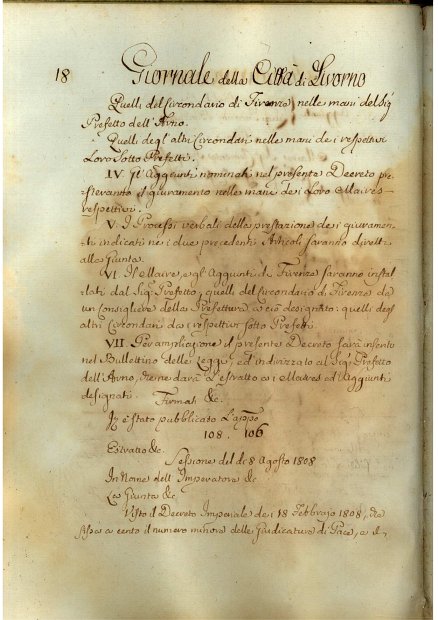 18 Giornale della Città di Livorno
Quelli del Circondario di Firenze, nelle mani del Sig
Prefetto dell'Arno.
Quelli degl'altri Circondari nelle mani dei respettivi
Loro Sotto Prefetti.
IV. Gl'Aggiunti nominati nel presente Decreto pre-
steranno il giuramento nelle mani dei Loro Maires
respettivi.
V. I Processi verbali della prestazione dei giuramen-
ti indicati nei due precedenti Articoli saranno diretti
alla Giunta.
VI. Il Maire, e gl'Aggiunti di Firenze saranno instal-
lati dal Sig. Prefetto, quelli del Circondario di Firenze da
un Consigliere della Prefettura a ciò designato: quelli degl'
altri Circondari dai respettivi Sotto Prefetti.
VII. Per ampliazione il presente Decreto sarà inserito
nel Bullettino delle Leggi, ed indirizzato al Sig. Prefetto
dell'Arno, che ne darà l'estratto ai Maires ed Aggiunti
designati. Firmati &c.
Iz è stato pubblicato l'appo
108. 106
Estratto &c.
Sessione del dì 8 Agosto 1808
In Nome dell'Imperatore &c
La Giunta &c
Visto il Decreto Imperiale dei 18 Febbrajo 1808, che
fissa a cento il numero minore delle Giudicature di Pace, e il